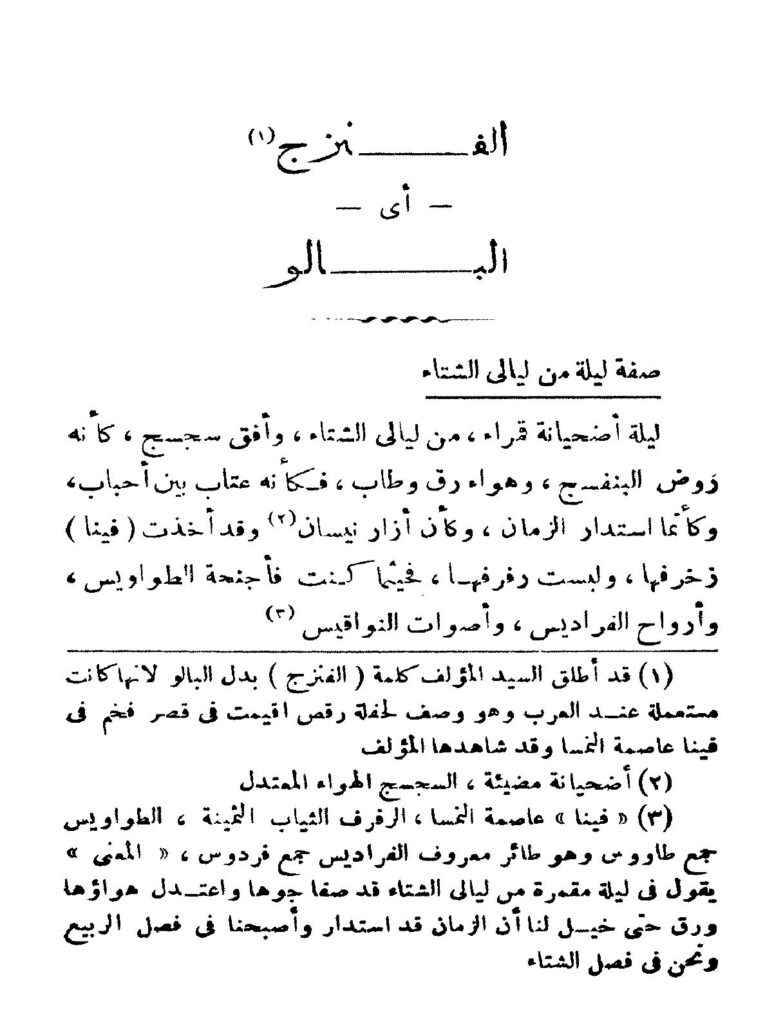 الفنزج (١)
— أى —
البالو
صفة ليلة من ليالى الشتاء
ليلة أضحيانة قمراء ، من ليالى الشتاء ، وأفق سجسج ، كأنه
رَوض البنفسج ، وهواء رق وطاب ، فكأنه عتاب بين أحباب ،
وكأنما استدار الزمان ، وكأن أزار نيسان (٢) وقد أخذت ( فينا )
زخرفها ، ولبست رفرفها ، فحيثما كنت فأجنحة الطواويس ،
وأرواح الفراديس ، وأصوات النواقيس (٣)
(١) قد أطلق السيد المؤلف كلمة ( الفنزج ) بدل البالو لانها كانت
مستعملة عند العرب وهو وصف لحفلة رقص اقيمت فى قصر فخم فى
فينا عاصمة النمسا وقد شاهدها المؤلف
(٢) أضحيانة مضيئة ، السجسج الهواء المعتدل
(٣) « فينا » عاصمة النمسا ، الرفرف الثياب الثمينة ، الطواويس
جمع طاووس وهو طائر معروف الفراديس جمع فردوس ، « المعنى »
يقول فى ليلة مقمرة من ليالى الشتاء قد صفا جوها واعتدل هواؤها
ورق حتى خيل لنا أن الزمان قد استدار وأصبحنا فى فصل الربيع
ونحن فى فصل الشتاء